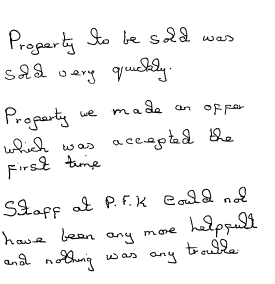 Property to be sold was
sold very quickly.
Property we made an offer
which was accepted the
first time
Staff at P.F.K could not
have been any more helpfull
and nothing was any trouble.